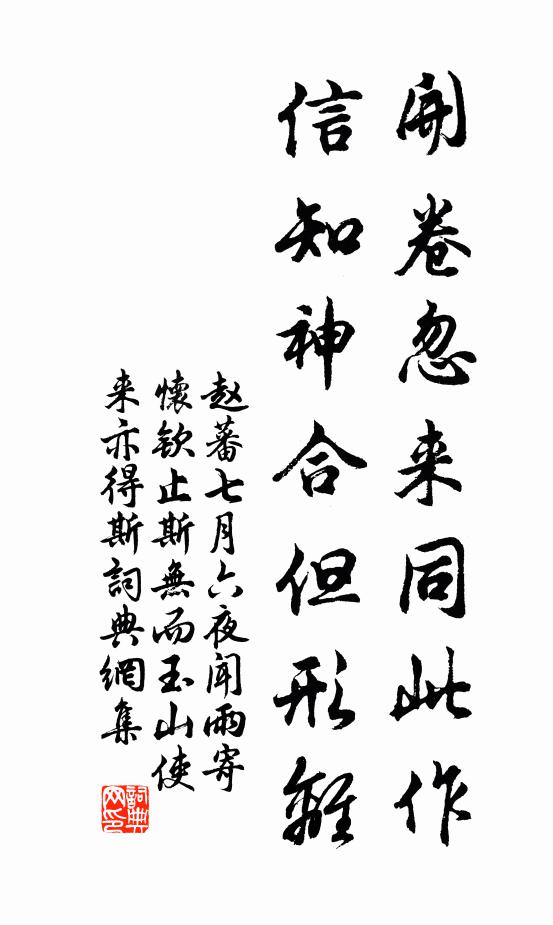 開卷忽来同此作
信知神合但形離
赵蕃七月六夜闻雨寄
懷欽止斯無而玉山使
来亦得斯詞典網集
詞典网印